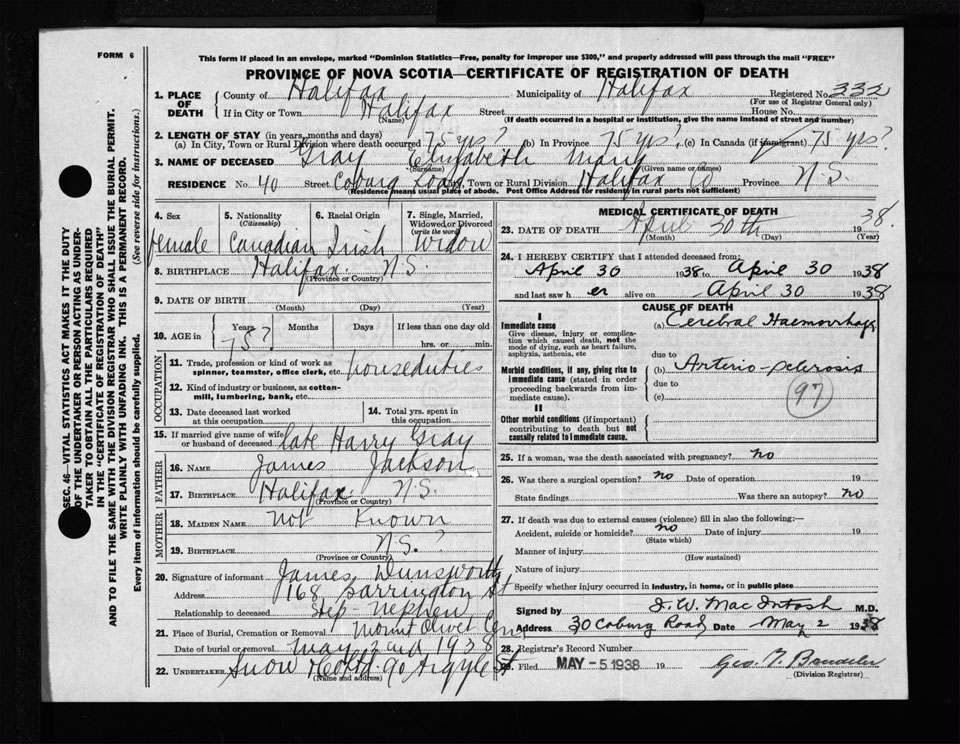 FORM 6
This form if placed in an envelope, marked "Dominion Statistics—Free, penalty for improper use $300," and properly addressed will pass through the mail "FREE"
PROVINCE OF NOVA SCOTIA—CERTIFICATE OF REGISTRATION OF DEATH
1. PLACE OF DEATH County of Halifax Municipality of Halifax Registered No. 332
(For use of Registrar General only)
If in City or Town Halifax Street House No.
(Name) (If death occurred in a hospital or institution, give the name instead of street and number)
2. LENGTH OF STAY (in years, months and days)
(a) In City, Town or Rural Division where death occurred 75 yrs? (b) In Province 75 yrs? (c) In Canada (if immigrant) 75 yrs?
3. NAME OF DECEASED Gray Elizabeth Mary
(Surname) (Given name or names)
RESIDENCE No. 40 Street Coburg Road, Town or Rural Division Halifax Co Province N.S.
(Residence means usual place of abode. Post Office Address for residents in rural parts not sufficient)
4. Sex female
5. Nationality (Citizenship) Canadian
6. Racial Origin Irish
7. Single, Married, Widowed or Divorced (write the word) Widow
8. BIRTHPLACE Halifax N.S.
(Province or Country)
9. DATE OF BIRTH
(Month) (Day) (Year)
10. AGE in Years 75? Months Days If less than one day old
hrs. or min.
OCCUPATION
11. Trade, profession or kind of work as spinner, teamster, office clerk, etc. houseduties
12. Kind of industry or business, as cotton-mill, lumbering, bank, etc.
13. Date deceased last worked at this occupation
14. Total yrs. spent in this occupation
15. If married give name of wife or husband of deceased late Harry Gray
FATHER
16. NAME James Jackson
17. BIRTHPLACE Halifax N.S.
(Province or Country)
MOTHER
18. MAIDEN NAME Not Known
19. BIRTHPLACE N.S.?
(Province or Country)
20. Signature of informant James Dunsworth
Address 168 Barrington St
Relationship to deceased Step-nephew
21. Place of Burial, Cremation or Removal Mount Olivet Cem
Date of burial or removal May 2nd 1938
22. UNDERTAKER Snow & Co Ltd 90 Argyle St
(Name and address)
MEDICAL CERTIFICATE OF DEATH
23. DATE OF DEATH April 30th 1938
(Month) (Day) (Year)
24. I HEREBY CERTIFY that I attended deceased from:
April 30 1938 to April 30 1938
and last saw her alive on April 30 1938
CAUSE OF DEATH
I
Immediate cause
Give disease, injury or complication which caused death, not the mode of dying, such as heart failure, asphyxia, asthenia, etc
(a) Cerebral Haemorrhage
due to
Morbid conditions, if any, giving rise to immediate cause (stated in order proceeding backwards from immediate cause).
(b) Arterio-sclerosis
due to
(c)
97
II
Other morbid conditions (if important) contributing to death but not causally related to immediate cause.
25. If a woman, was the death associated with pregnancy? no
26. Was there a surgical operation? no Date of operation 19
State findings Was there an autopsy? no
27. If death was due to external causes (violence) fill in also the following:—
Accident, suicide or homicide? no Date of injury 19
(State which)
Manner of injury
(How sustained)
Nature of injury
Specify whether injury occurred in industry, in home, or in public place
Signed by D. W. MacIntosh M.D.
Address 30 Coburg Road Date May 2 1938
28. Registrar's Record Number
29. Filed MAY - 5 1938
(Division Registrar)
SEC. 46—VITAL STATISTICS ACT MAKES IT THE DUTY
OF THE UNDERTAKER OR PERSON ACTING AS UNDER-
TAKER TO OBTAIN ALL THE PARTICULARS REQUIRED
IN THE "CERTIFICATE OF REGISTRATION OF DEATH"
AND TO FILE THE SAME WITH THE DIVISION REGISTRAR WHO SHALL ISSUE THE BURIAL PERMIT.
WRITE PLAINLY WITH UNFADING INK. THIS IS A PERMANENT RECORD.
Every item of information should be carefully supplied. (See reverse side for instructions.)